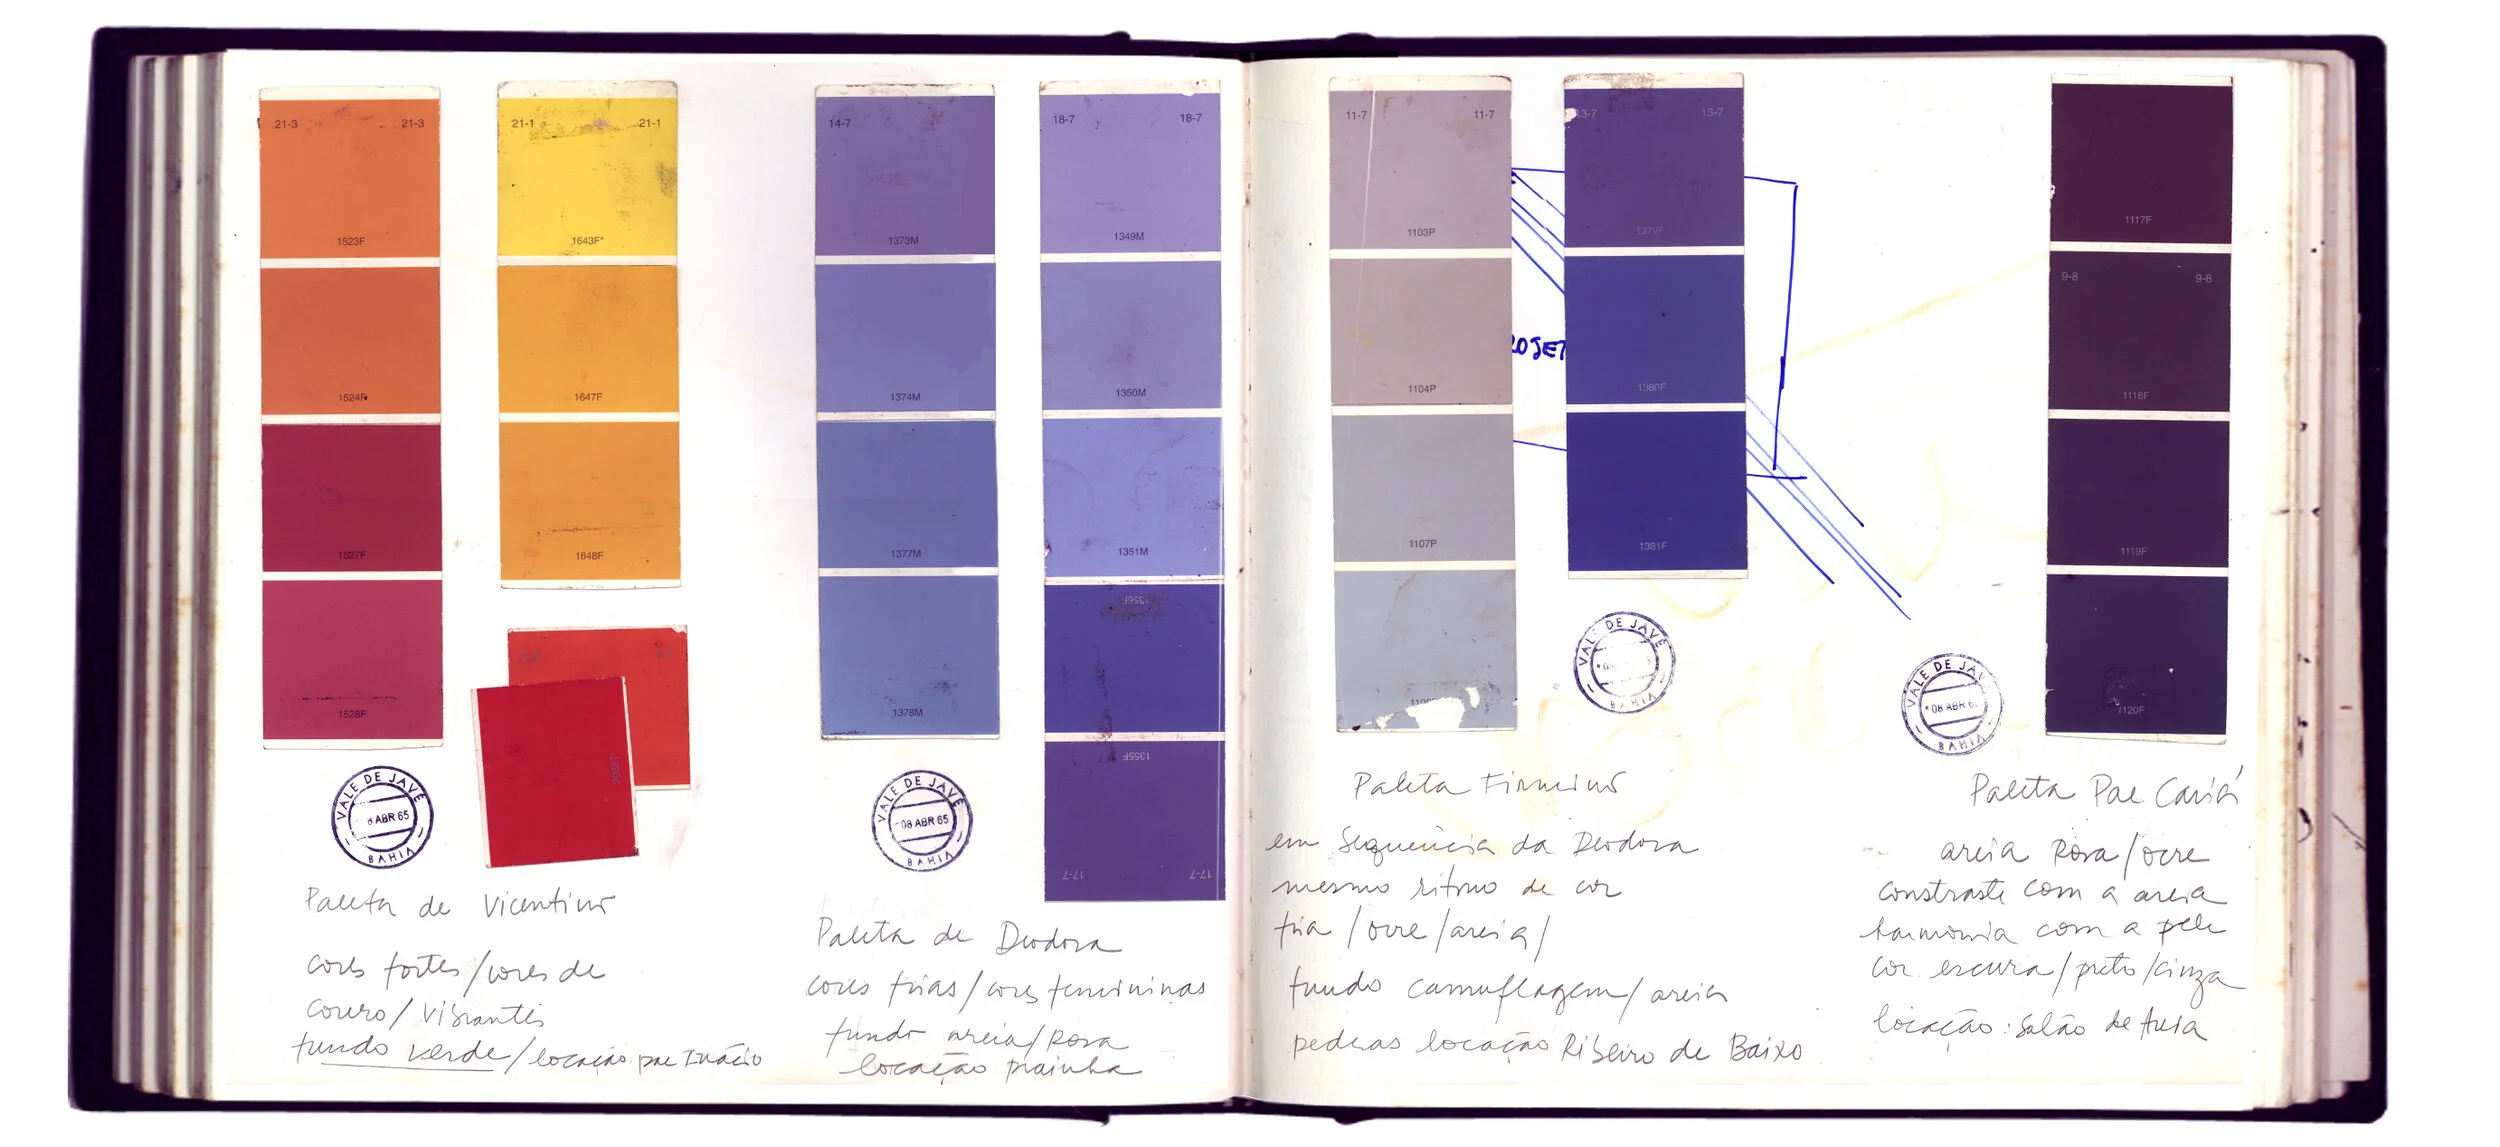 21-3 21-3
1523F
1524F
1527F
1528F
21-1 21-1
1643F*
1647F
1648F
VALE DE JAVÉ
8 ABR 65
BAHIA
Paleta de Vicentino
cores fortes/cores de
couro/vibrantes
fundo verde/locação pae Inácio
14-7
1373M
1374M
1377M
1378M
18-7 18-7
1349M
1350M
1351M
1356F
1355F
17-7 17-7
VALE DE JAVÉ
08 ABR 65
BAHIA
Paleta de Deodora
cores frias/cores femininas
fundo areia/rosa
locação prainha
11-7 11-7
1103P
1104P
1107P
ROJET
13-7 13-7
1379F
1380F
1381F
VALE DE JAVÉ
BAHIA
Paleta Firmino
em sequência da Deodora
mesmo ritmo de cor
fria/ocre/areia/
fundo camuflagem/areia
pedras locação Ribeiro de Baixo
1117F
9-8 9-8
1118F
1119F
1120F
VALE DE JAVÉ
08 ABR 6
BAHIA
Paleta Pae Cariá
areia Rosa/ocre
constraste com a areia
harmonia com a pele
cor escura/preto/cinza
locação: Salão de Areia